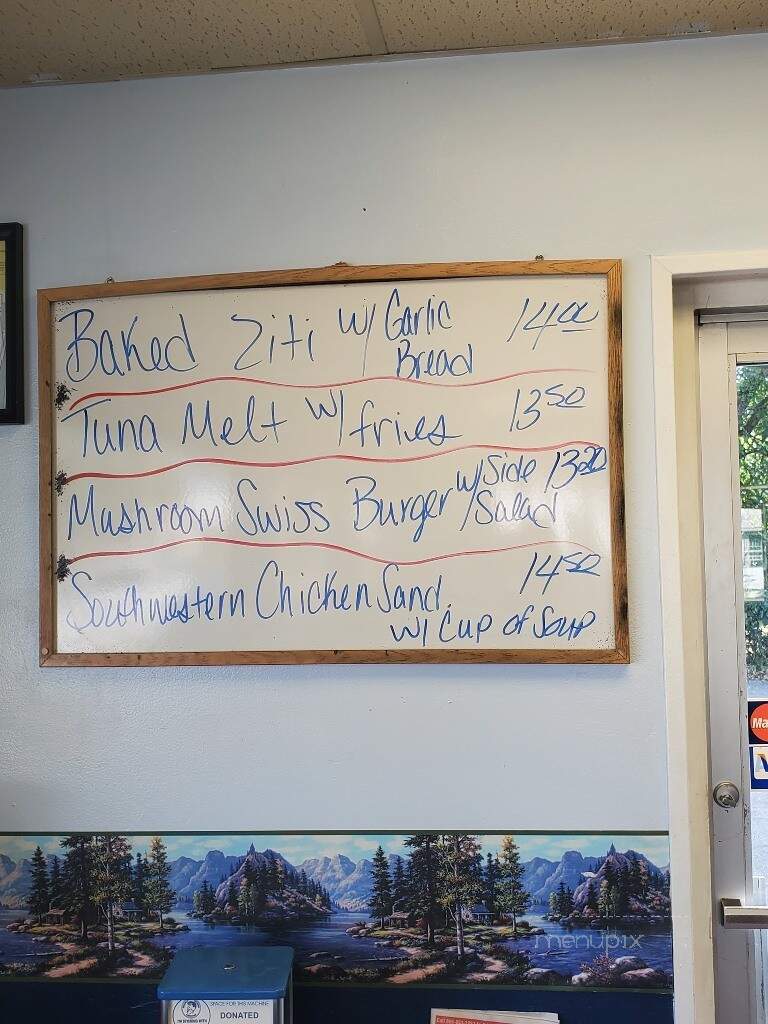 Baked Ziti w/ Garlic Bread 14.00
Tuna Melt w/ fries 13.50
Mushroom Swiss Burger w/ Side Salad
Southwestern Chicken Sand. 14.50
w/ Cup of Soup
menupix
SPACE FOR THIS MACHINE
DONATED
Ma